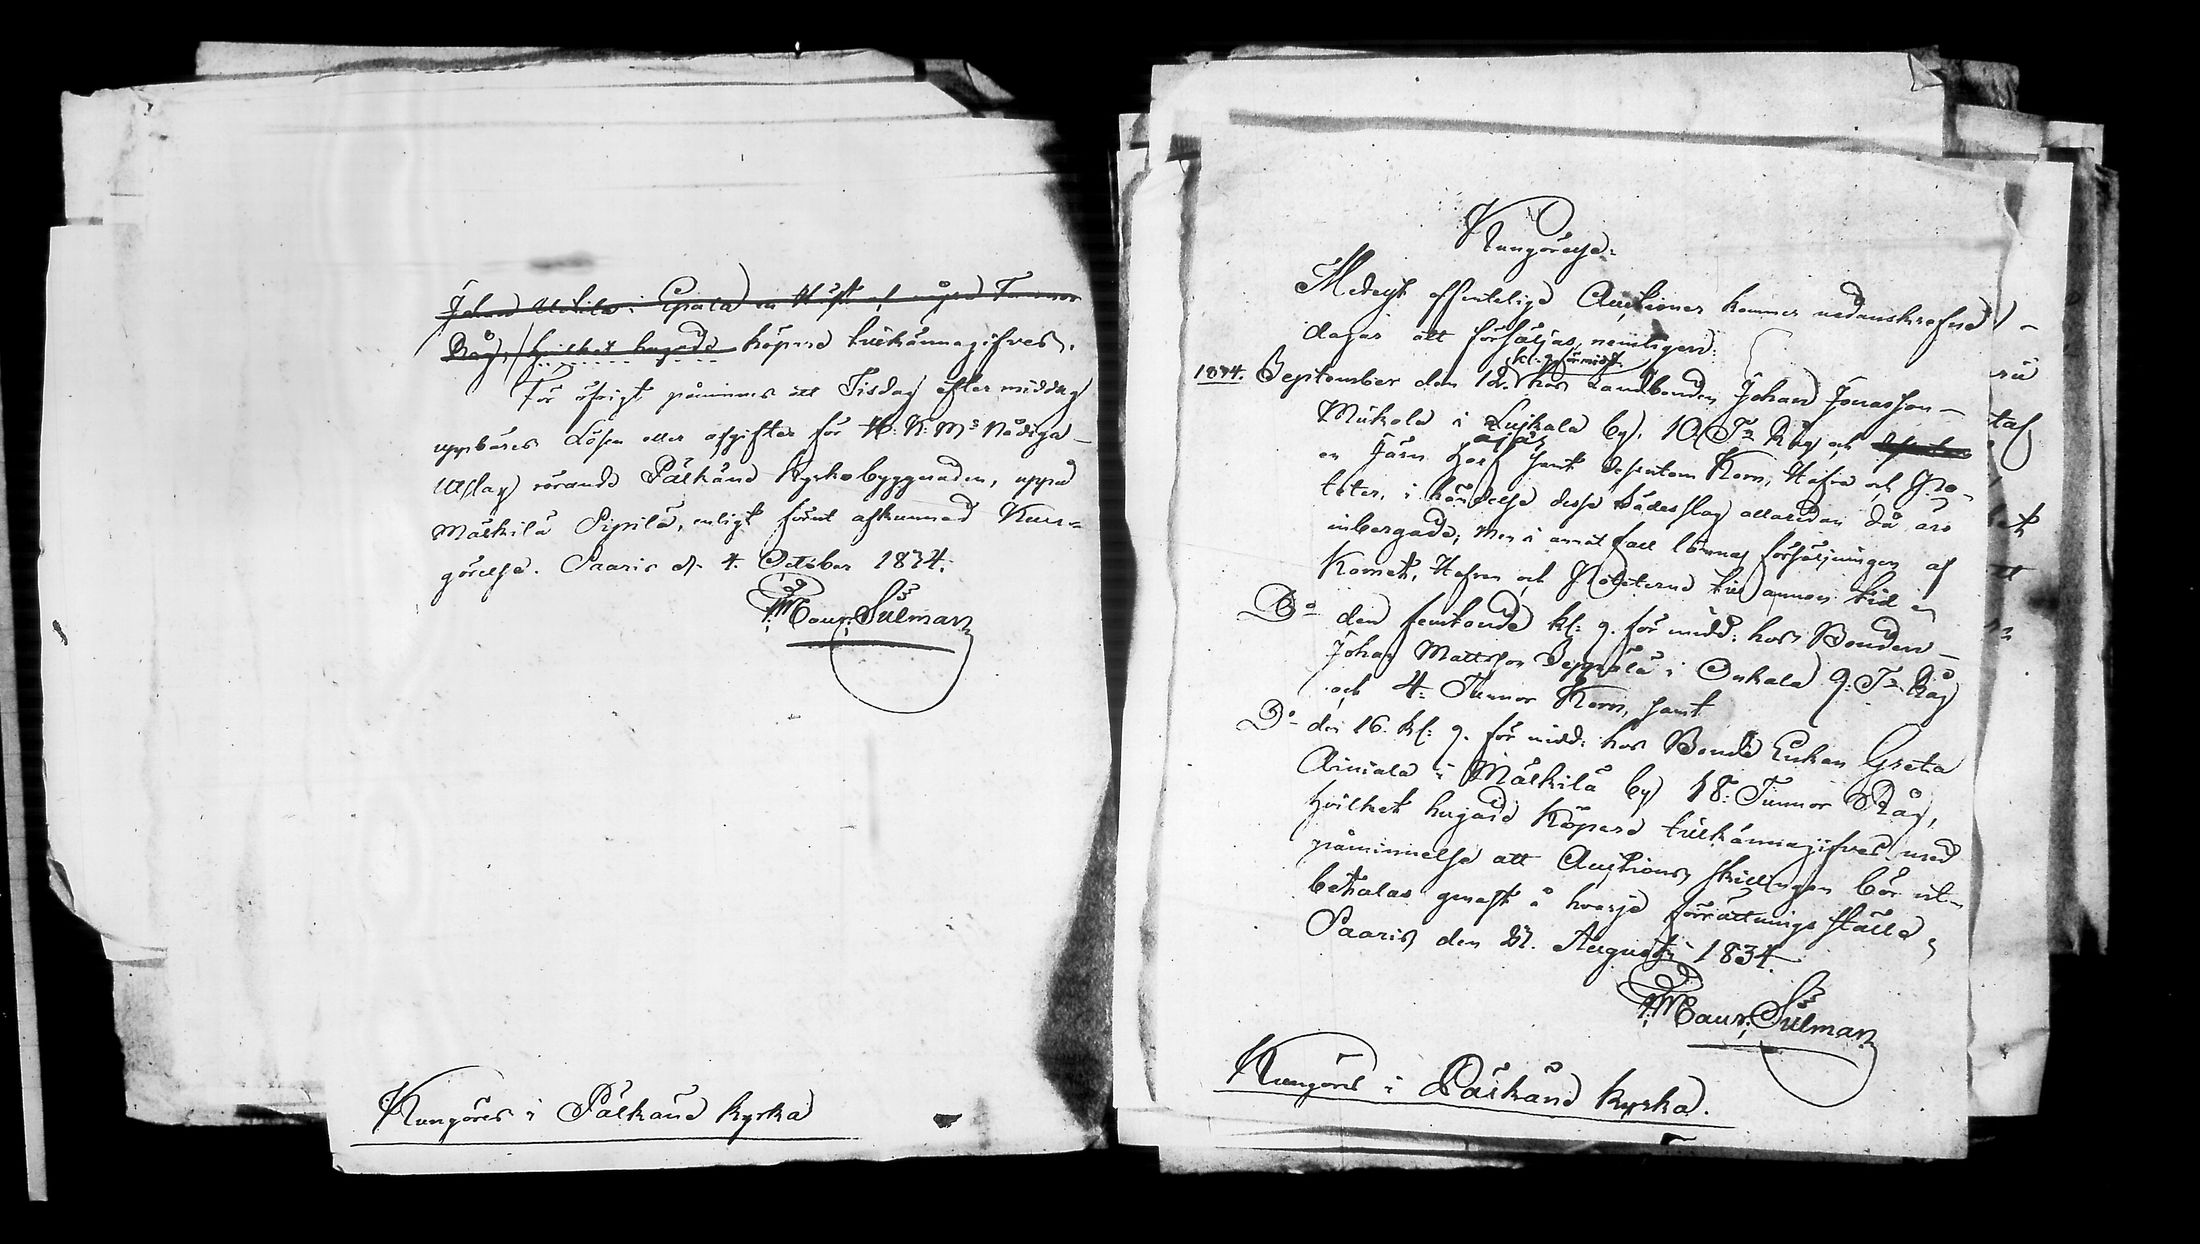 Johan Uotila i Epala en Häst och några Tunnor
Råg, hvilket hugade köpare tillkännagifves.
För öfrigt påminnes att Tisdag efter middag
uppbäres Lösen eller afgifter för H: K: M:s Nådiga
Utslag rörande Pälkäne Kyrkobyggnaden, uppå
Mälkilä Sipilä, enligt förut afkunnad Kun-
görelse. Saaris d. 4. October 1834.
Maur: Silman
Kungöres i Pälkäne kyrka
Kungörelse:
Medelst offentelige Auctioner kommer nedanskrefne
dagar att försäljas, nemligen:
kl. 9 förmidd.
1834. September den 12. hos Landbonden Johan Jonasson
Mickola i Luikala by, 10 T:r Råg och
en Järn Harf samt dessutom Korn, Hafre och Po-
teter, i händelse desse Sädesslag allaredan då äro
inbergade, men i annat fall lämnas försäljningen af
Kornet, Hafren och Poteterne till annan tid
D:o den femtonde kl: 9. för midd: hos Bonden
Johan Mattsson Seppälä i Onkala 9: T:r Råg
och 4: Tunnor Korn, samt
D:o den 16. kl: 9. för midd: hos Bonde Enkan Greta
Ainiala i Mälkilä by 18: Tunnor Råg,
hvilket hugade Köpare tillkännagifves med
påminnelse att Auctions skillingen bör ut-
betalas genast å hvarje förrättnings ställe
Saaris den 21. Augusti 1834.
Maur: Silman
Kungöres i Pälkäne kyrka.